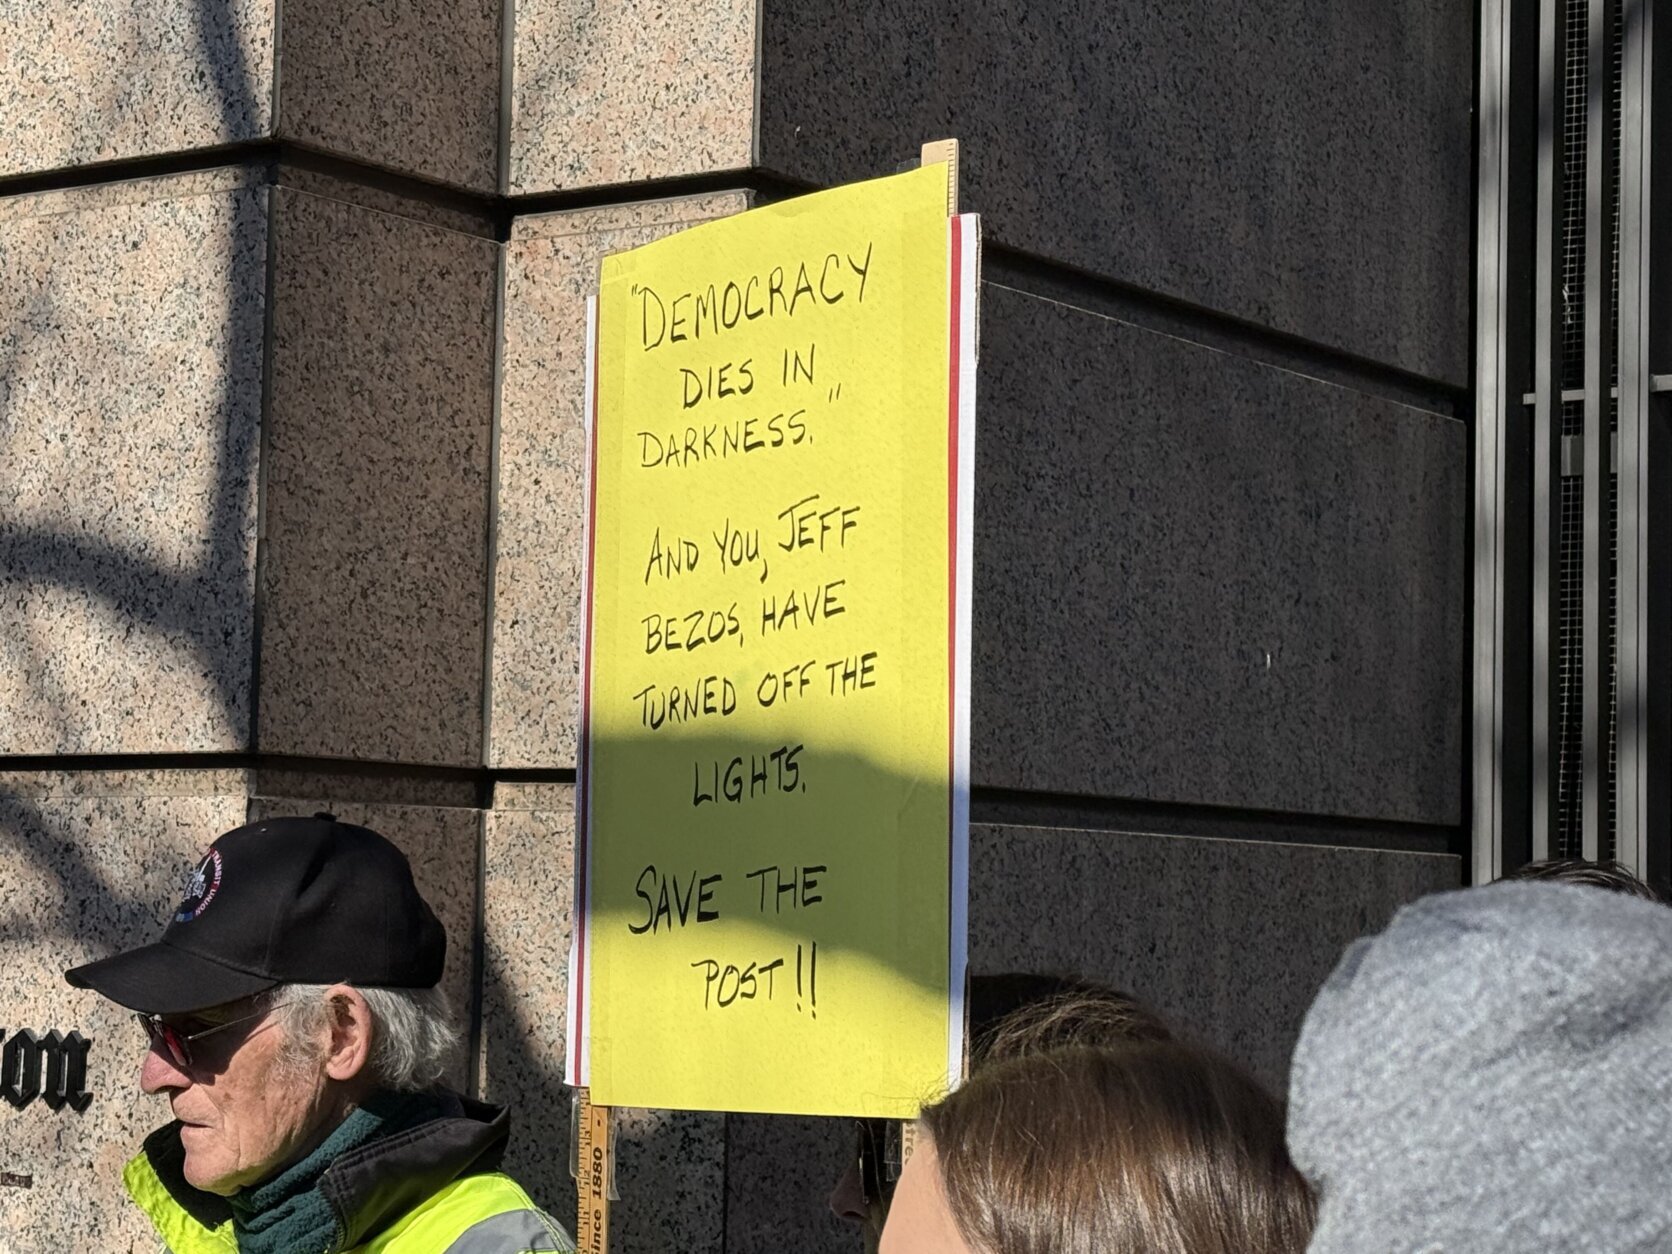 "DEMOCRACY
DIES IN
DARKNESS."
AND YOU, JEFF
BEZOS, HAVE
TURNED OFF THE
LIGHTS.
SAVE THE
POST!!
TRANSIT UNION
on
Since 1880